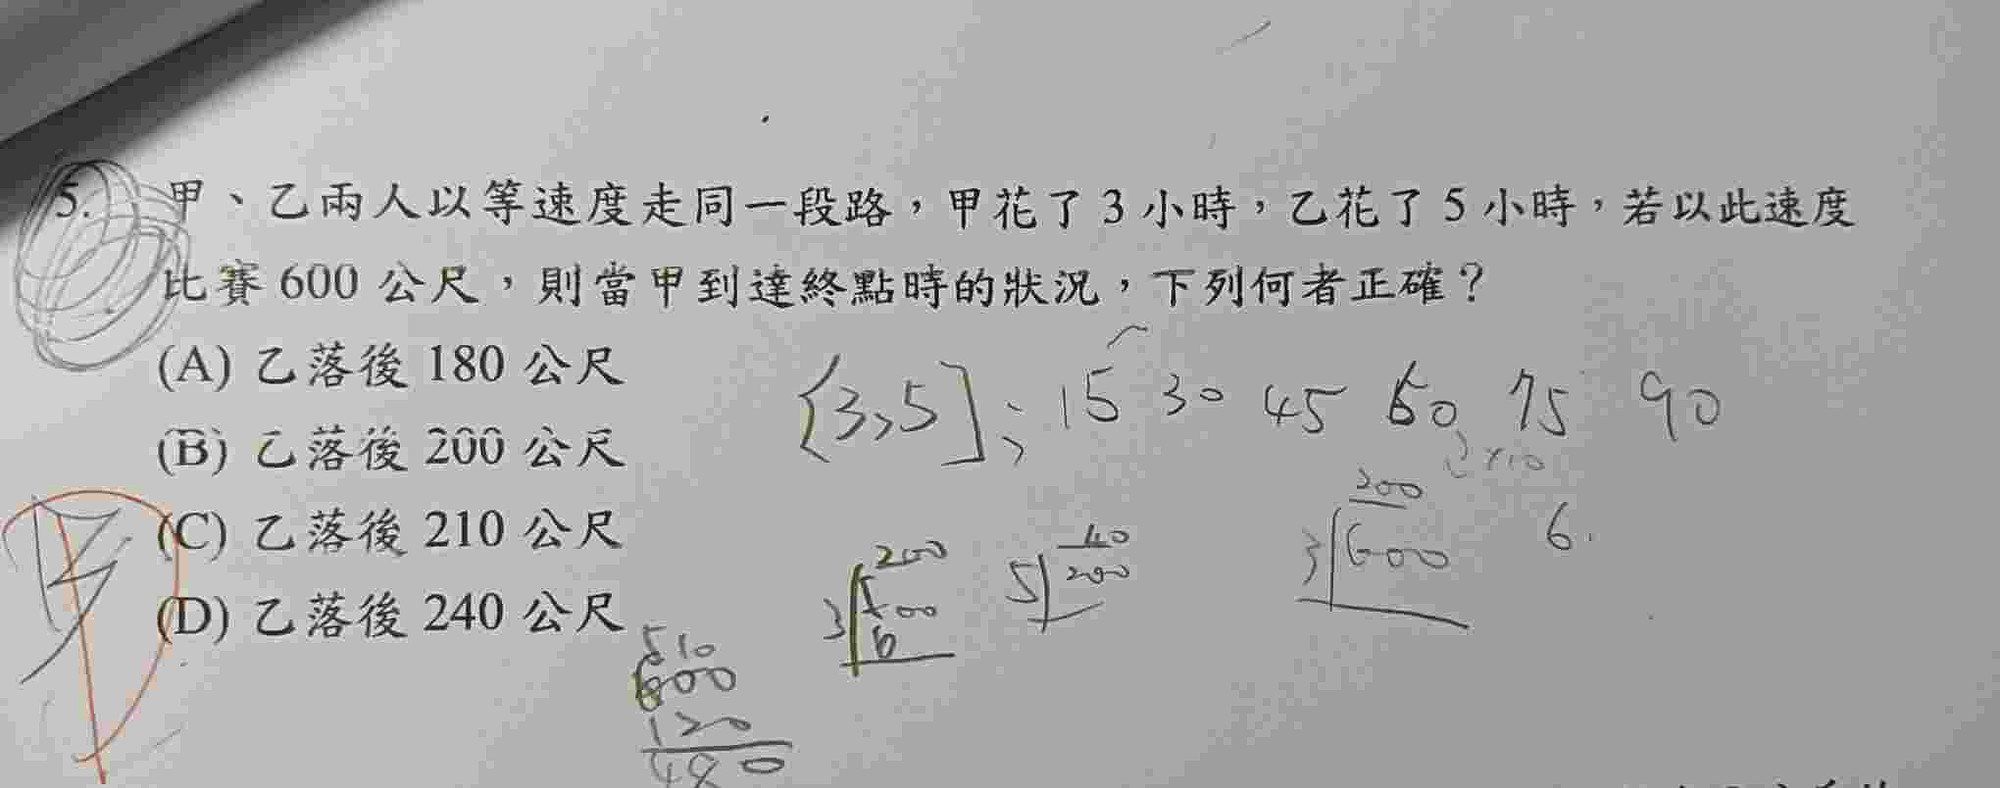 5. 甲、乙兩人以等速度走同一段路，甲花了 3 小時，乙花了 5 小時，若以此速度
比賽 600 公尺，則當甲到達終點時的狀況，下列何者正確？
(A) 乙落後 180 公尺
(B) 乙落後 200 公尺
(C) 乙落後 210 公尺
(D) 乙落後 240 公尺
[3,5] ; 15 30 45 60 75 90
200
3 600 6.
200
3 600
40
5 200
5 10
600
120
480